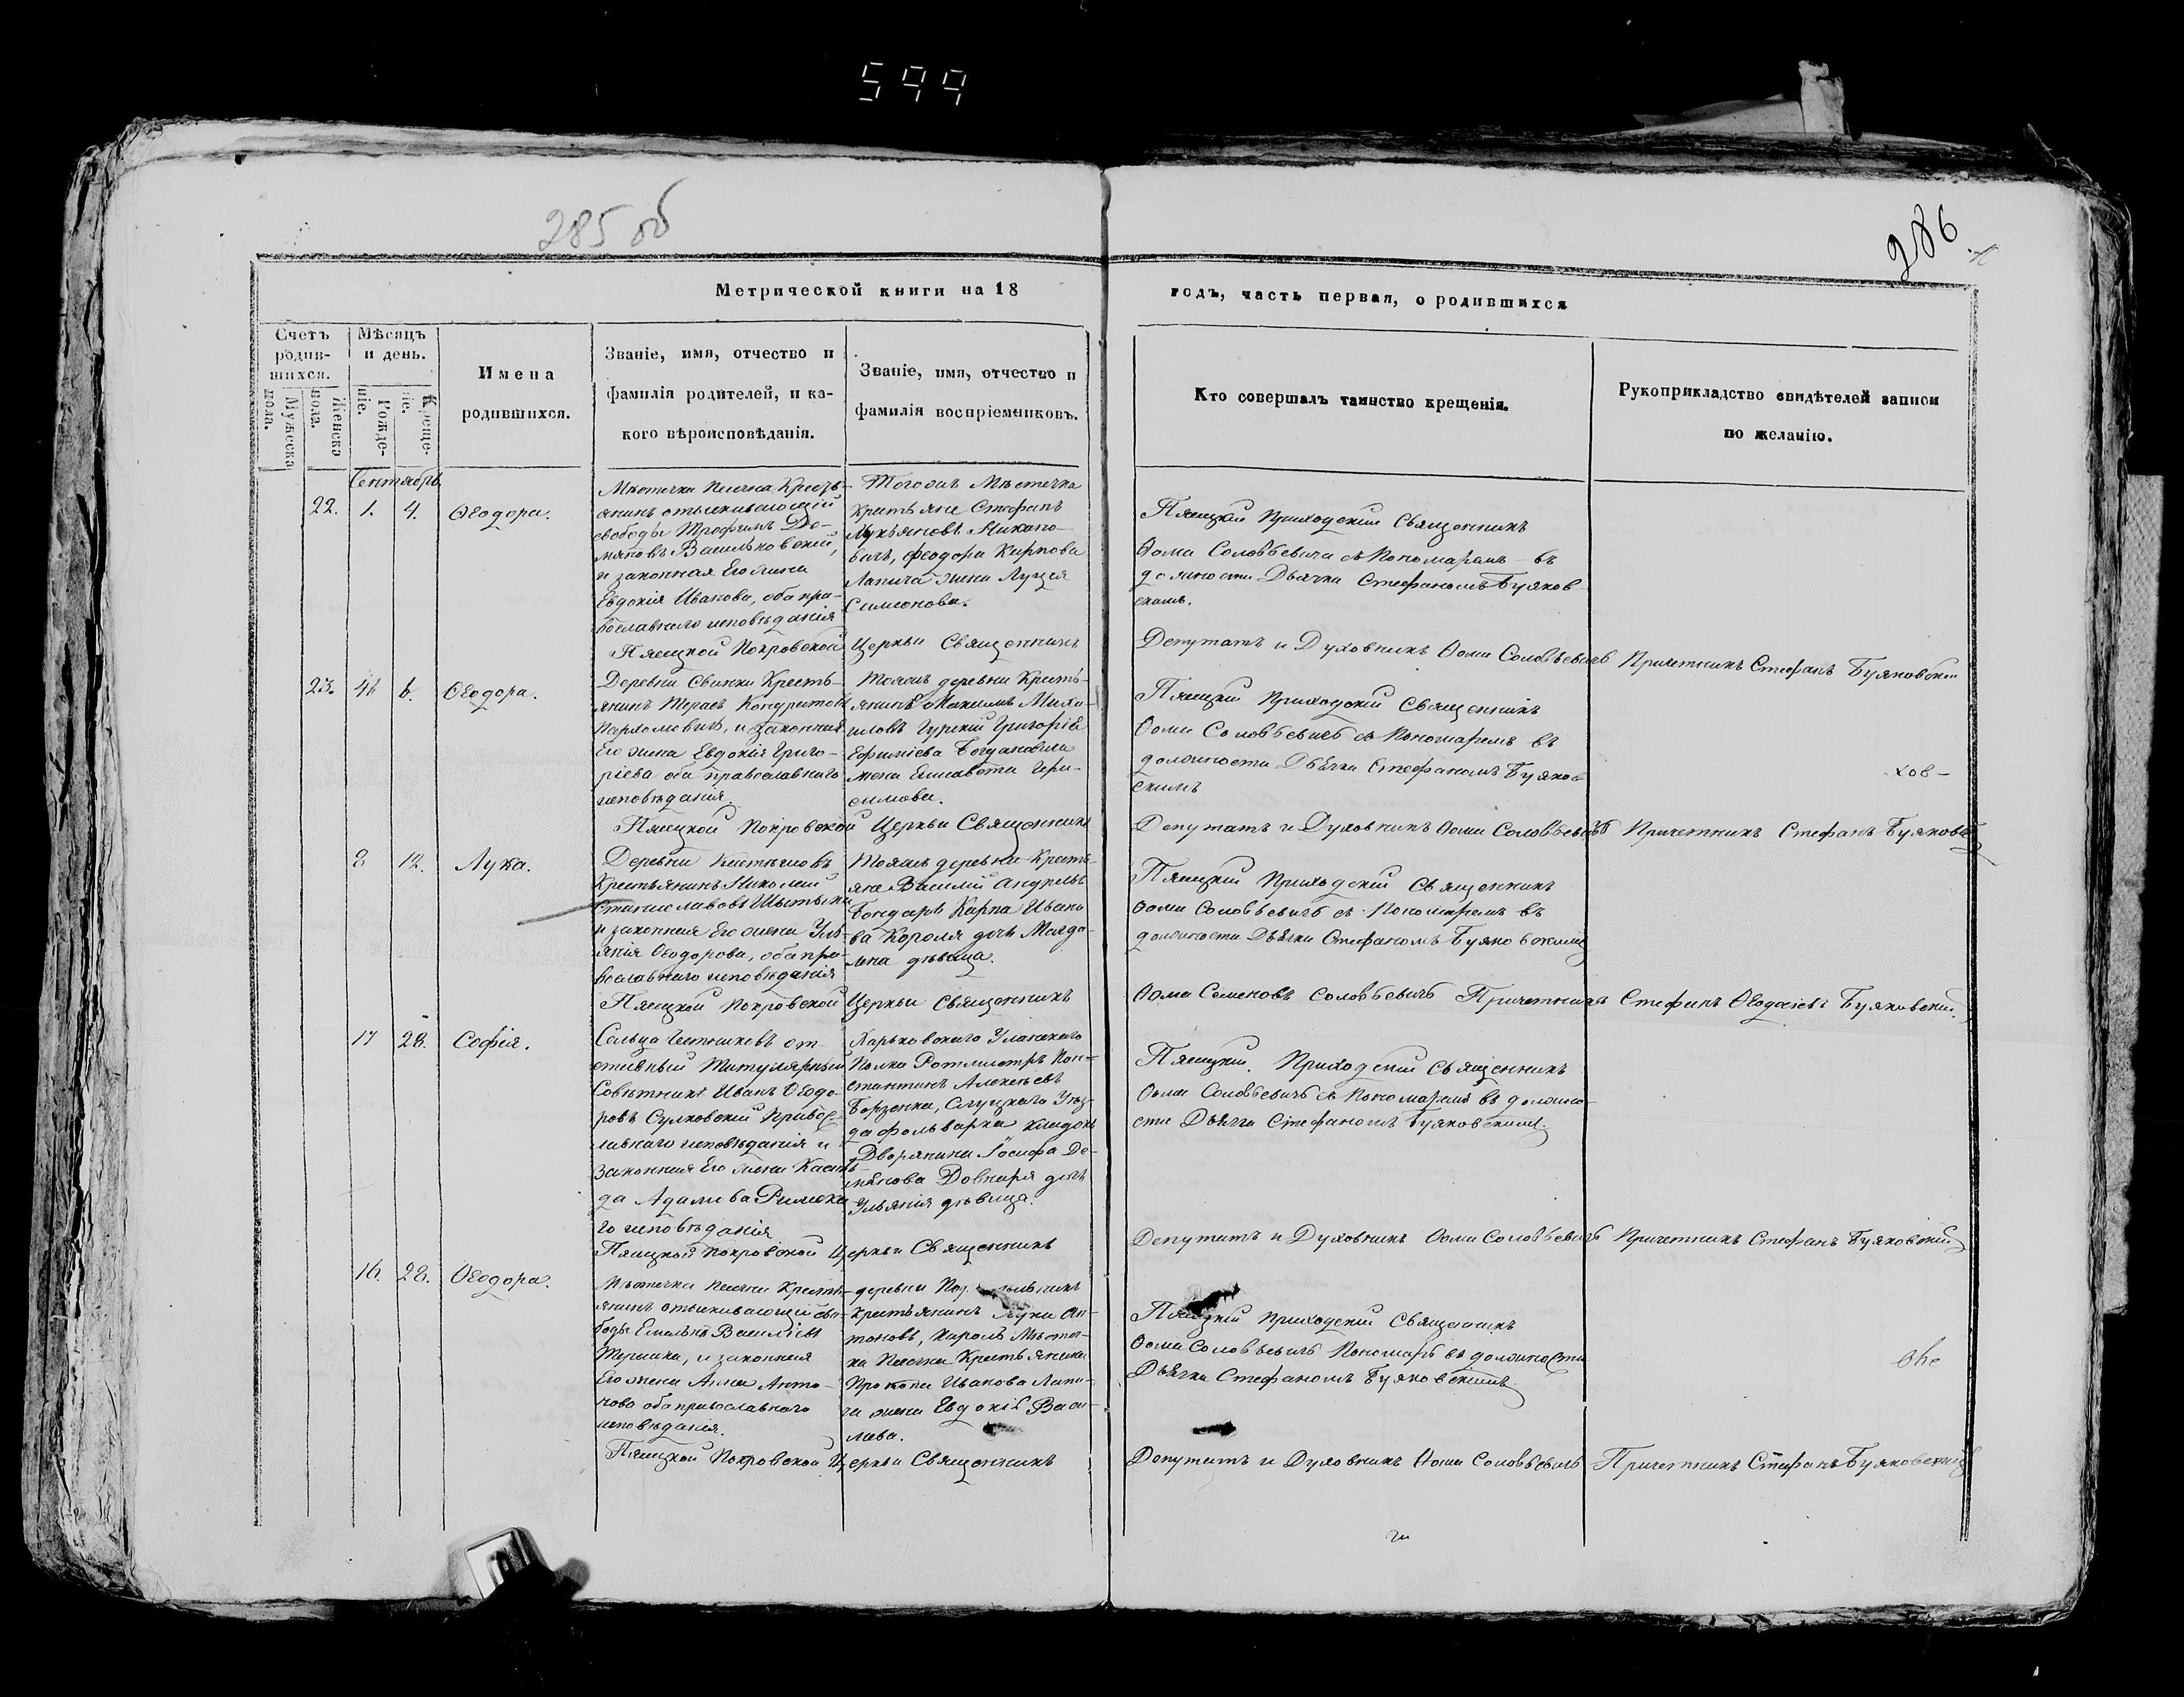 599
285 об
286
Метрической книги на 18
годъ, часть первая, о родившихся
Счетъ родив-шихся.
Мѣсяцъ и день.
Мужеска пола.
Женска пола.
Рожде-ніе.
Креще-ніе.
Имена
родившихся.
Званіе, имя, отчество и
фамилія родителей, и ка-
кого вѣроисповѣданія.
Званіе, имя, отчество и
фамилія воспріемниковъ.
Кто совершалъ таинство крещенія.
Рукоприкладство свидѣтелей записи
по желанію.
Сентябрь
22. 1. 4. Ѳеодора.
Мѣстечка Песчна Кресть-
янинъ отыскивающій
свободы Трофимъ Де-
мяновъ Васильковскій,
и законная Его жена
Евдокія Иванова, оба пра-
вославнаго исповѣданія
Тогожъ Мѣстечка
Крестьяне Стефанъ
Лукьяновъ
Лапича жена Луцея
Симеонова.
Пясецкій Приходскій Священникъ
Ѳома Соловьевичъ съ Пономаремъ въ
должности Дьячка Стефаномъ Буяков
скимъ.
Пясецкой Покровской Церкви Священникъ
Депутатъ и Духовникъ Ѳома Соловьевичъ Причетникъ Стефанъ Буяковскій
23. 4 6. Ѳеодора.
Деревни Свинки Кресть-
янинъ Тарасъ Кондратовъ
Пархомовичъ, и законная
Его жена Евдокія Григо-
ріева оба православнаго
исповѣданія.
Тояжъ деревни Кресть-
янинъ Максимъ Миха-
иловъ Гурскій Григорія
Ефиміева Богдановича
жена Елисавета Гера-
симова.
Пясецкій Приходскій Священникъ
Ѳома Соловьевичъ съ Пономаремъ въ
должности Дьячка Стефаномъ Буяков
скимъ
Пясецкой Покровской Церкви Священникъ
Депутатъ и Духовникъ Ѳома Соловьевичъ Причетникъ Стефанъ Буяковскій
8 12. Лука.
Деревни
Крестьянинъ Николай
Станиславовъ
и законная Его жена Уль-
янія Ѳеодорова, оба пра-
вославнаго исповѣданія
Тояжъ деревни Кресть-
яне Василій Андреевъ
Бондарь Карпа Ивано
ва Короля дочь Магда-
лина дѣвица.
Пясецкій Приходскій Священникъ
Ѳома Соловьевичъ съ Пономаремъ въ
должности Дьячка Стефаномъ Буяковскимъ
Пясецкой Покровской Церкви Священникъ
Ѳома Семеновъ Соловьевичъ Причетникъ Стефанъ Ѳеодосіевъ Буяковскій.
17 28. Софія.
Сельца от-
ставный Титулярный
Совѣтникъ Иванъ Ѳеодо-
ровъ Сулковскій Правос-
лавнаго исповѣданія и
законная Его жена
да Адамова Римска
го исповѣданія
Харьковскаго Уланскаго
Полка Ротмистръ Кон-
стантинъ Алексѣевъ
Борзенко, Слуцкаго Уѣз-
да фольварка
Дворянина Іосифа Де-
мянова Довнара дочь
Ульянія дѣвица.
Пясецкій Приходскій Священникъ
Ѳома Соловьевичъ съ Пономаремъ въ должно-
сти Дьячка Стефаномъ Буяковскимъ.
Пясецкой Покровской Церкви Священникъ
Депутатъ и Духовникъ Ѳома Соловьевичъ Причетникъ Стефанъ Буяковскій
16. 28. Ѳеодора.
Мѣстечка Песчна Кресть-
янинъ отыскивающій сво-
боды Емельянъ Василіевъ
и законная
Его жена Анна Анто-
нова оба православнаго
исповѣданія.
деревни
Крестьянинъ Лука Ан-
тоновъ, Король Мѣстеч-
ка Песчна Крестьянина
Прокопа Иванова Лапи-
ча жена Евдокія Васи-
льева.
Пясецкій Приходскій Священникъ
Ѳома Соловьевичъ Пономарь въ должности
Дьячка Стефаномъ Буяковскимъ.
Пясецкой Покровской Церкви Священникъ
Депутатъ и Духовникъ Ѳома Соловьевичъ Причетникъ Стефанъ Буяковскій